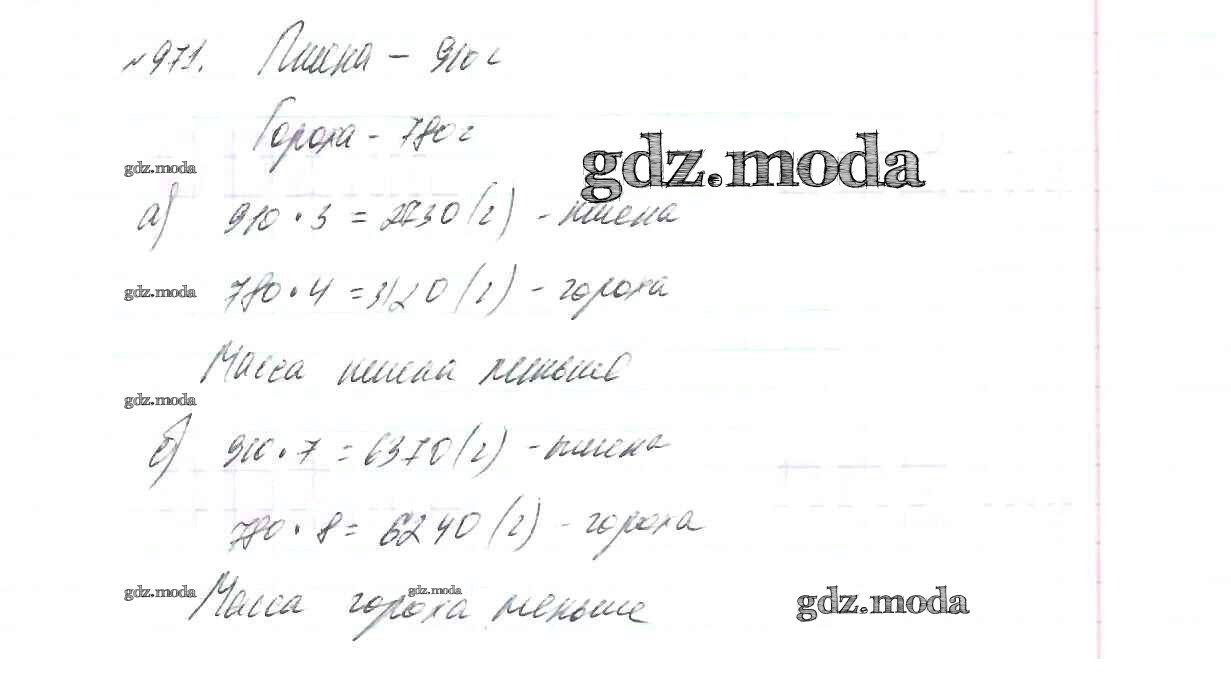 №971. Пшена – 910 г
Гороха – 780 г
gdz.moda
gdz.moda
а) 910 · 3 = 2730 (г) – пшена
gdz.moda
780 · 4 = 3120 (г) – гороха
Масса пшена меньше
gdz.moda
б) 910 · 7 = 6370 (г) – пшена
780 · 8 = 6240 (г) – гороха
gdz.moda
gdz.moda
gdz.moda
Масса гороха меньше